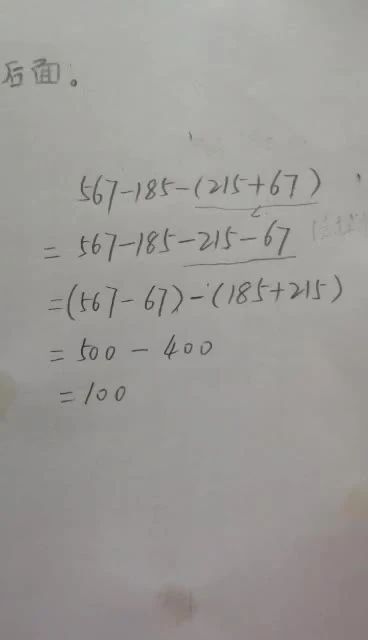 后面。
567-185-(215+67)
=567-185-215-67
=(567-67)-(185+215)
=500-400
=100